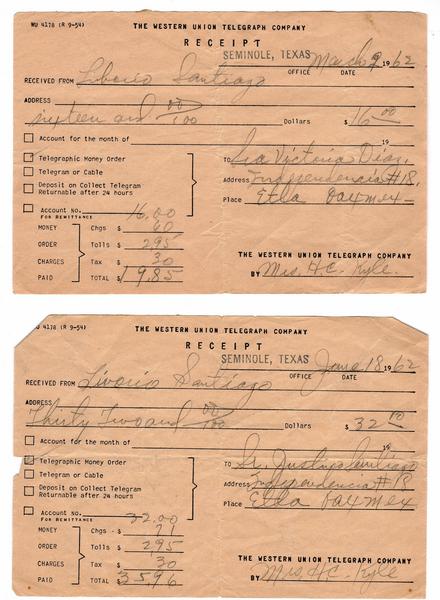 WU 4178 (R 9-54)
THE WESTERN UNION TELEGRAPH COMPANY
RECEIPT
SEMINOLE, TEXAS March 9 1962
OFFICE DATE
RECEIVED FROM Liborio Santiago
ADDRESS
sixteen and 00/100 Dollars $ 16.00
Account for the month of 19
Telegraphic Money Order
Telegram or Cable
Deposit on Collect Telegram
Returnable after 24 hours
Account No.
FOR REMITTANCE
TO Sra Victoria Diaz,
Address Independencia #18,
Place Etla Oax Mex
16.00
MONEY Chgs $ 60
ORDER Tolls $ 295
CHARGES Tax $ 30
PAID TOTAL $ 19.85
THE WESTERN UNION TELEGRAPH COMPANY
BY Mrs. H C. Kyle.
WU 4178 (R 9-54)
THE WESTERN UNION TELEGRAPH COMPANY
RECEIPT
SEMINOLE, TEXAS June 18 1962
OFFICE DATE
RECEIVED FROM Livorio Santiago
ADDRESS
Thirty Two and 00/100 Dollars $ 32.00
Account for the month of 19
Telegraphic Money Order
Telegram or Cable
Deposit on Collect Telegram
Returnable after 24 hours
Account No.
FOR REMITTANCE
TO Sr. Justino
Address Independencia # 18
Place Etla Oax Mex
32.00
MONEY Chgs $ 71
ORDER Tolls $ 295
CHARGES Tax $ 30
PAID TOTAL $ 35.96
THE WESTERN UNION TELEGRAPH COMPANY
BY Mrs H C. Kyle